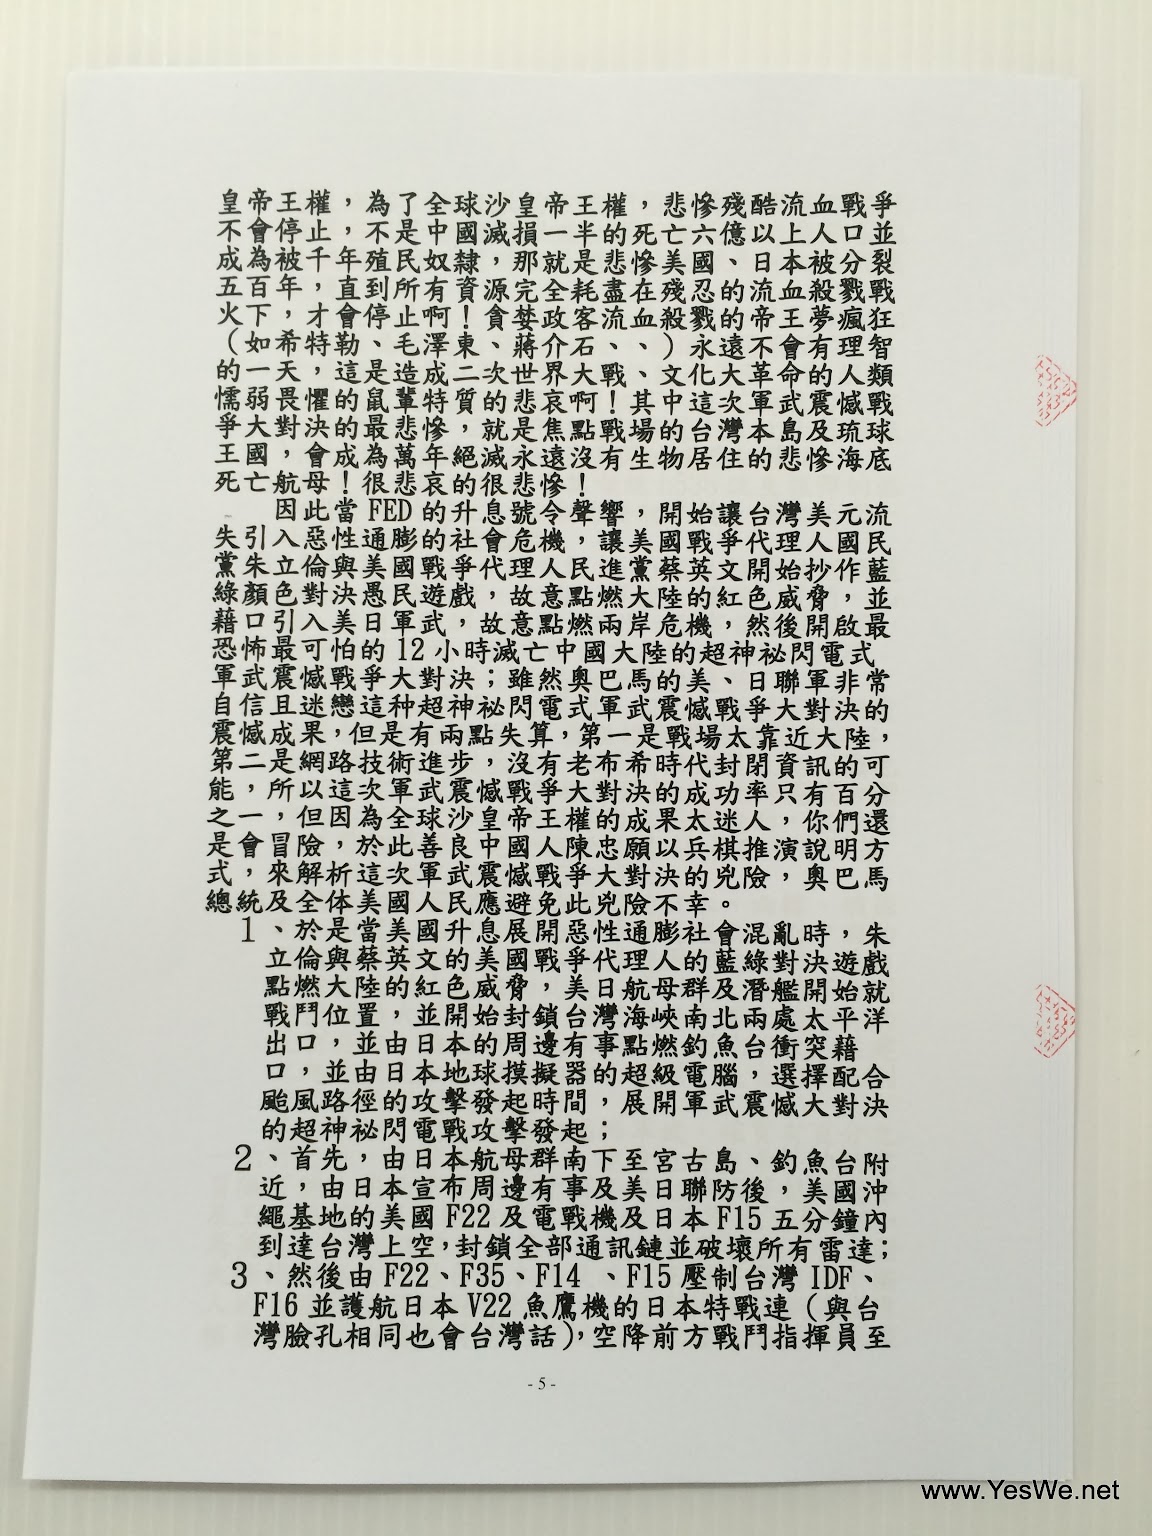 皇帝王權，為了全球沙皇帝王權，悲慘殘酷流血戰爭
不會停止，不是中國滅損一半的死亡六億以上人口並
成為被千年殖民奴隸，那就是悲慘美國、日本被分裂
五百年，直到所有資源完全耗盡在殘忍的流血殺戮戰
火下，才會停止啊！貪婪政客流血殺戮的帝王夢瘋狂
（如希特勒、毛澤東、蔣介石、、）永遠不會有理智
的一天，這是造成二次世界大戰、文化大革命的人類
懦弱畏懼的鼠輩特質的悲哀啊！其中這次軍武震憾戰
爭大對決的最悲慘，就是焦點戰場的台灣本島及琉球
王國，會成為萬年絕滅永遠沒有生物居住的悲慘海底
死亡航母！很悲哀的很悲慘！
因此當FED的升息號令聲響，開始讓台灣美元流
失引入惡性通膨的社會危機，讓美國戰爭代理人國民
黨朱立倫與美國戰爭代理人民進黨蔡英文開始抄作藍
綠顏色對決愚民遊戲，故意點燃大陸的紅色威脅，並
藉口引入美日軍武，故意點燃兩岸危機，然後開啟最
恐怖最可怕的12小時滅亡中國大陸的超神祕閃電式
軍武震憾戰爭大對決；雖然奧巴馬的美、日聯軍非常
自信且迷戀這种超神祕閃電式軍武震憾戰爭大對決的
震憾成果，但是有兩點失算，第一是戰場太靠近大陸，
第二是網路技術進步，沒有老布希時代封閉資訊的可
能，所以這次軍武震憾戰爭大對決的成功率只有百分
之一，但因為全球沙皇帝王權的成果太迷人，你們還
是會冒險，於此善良中國人陳忠願以兵棋推演說明方
式，來解析這次軍武震憾戰爭大對決的兇險，奧巴馬
總統及全体美國人民應避免此兇險不幸。
1、於是當美國升息展開惡性通膨社會混亂時，朱
立倫與蔡英文的美國戰爭代理人的藍綠對決遊戲
點燃大陸的紅色威脅，美日航母群及潛艦開始就
戰鬥位置，並開始封鎖台灣海峽南北兩處太平洋
出口，並由日本的周邊有事點燃釣魚台衝突藉
口，並由日本地球摸擬器的超級電腦，選擇配合
颱風路徑的攻擊發起時間，展開軍武震憾大對決
的超神祕閃電戰攻擊發起；
2、首先，由日本航母群南下至宮古島、釣魚台附
近，由日本宣布周邊有事及美日聯防後，美國沖
繩基地的美國F22及電戰機及日本F15五分鐘內
到達台灣上空，封鎖全部通訊鏈並破壞所有雷達；
3、然後由F22、F35、F14 、F15壓制台灣IDF、
F16並護航日本V22魚鷹機的日本特戰連（與台
灣臉孔相同也會台灣話），空降前方戰鬥指揮員至
- 5 -
www.YesWe.net